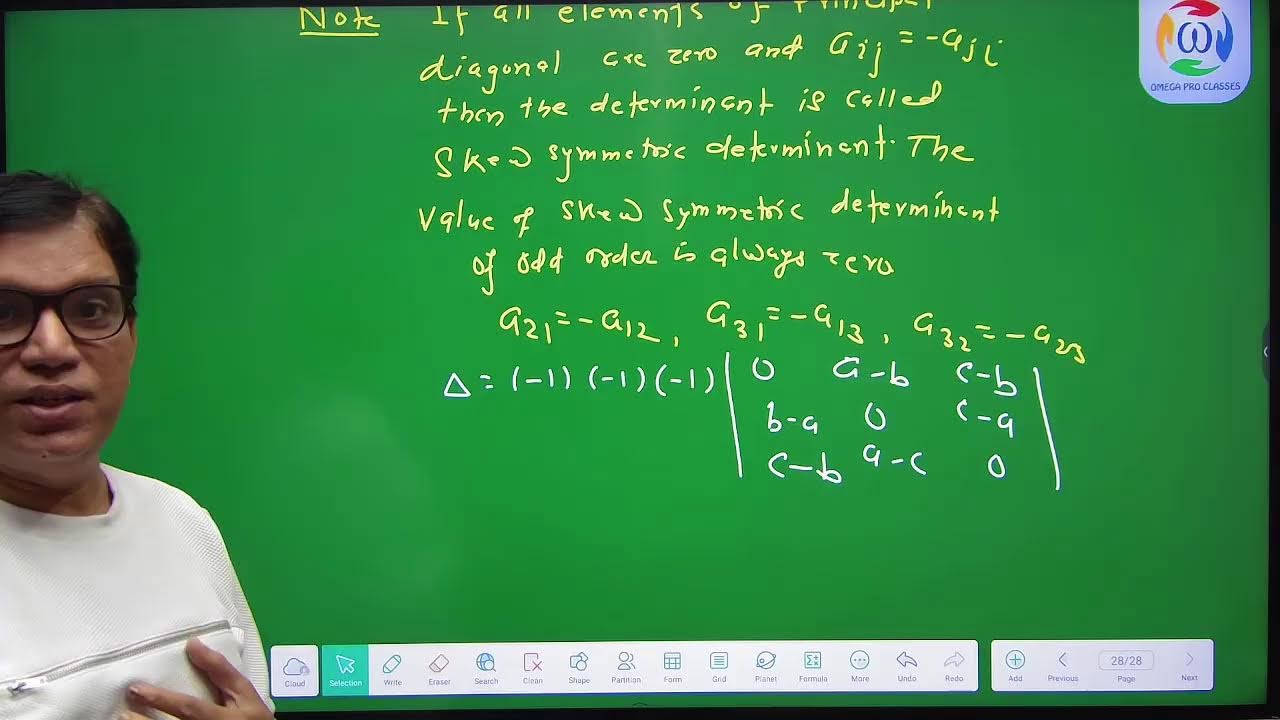 Note If all elements of Principal
diagonal are zero and aij = -aji
then the determinant is called
Skew symmetric determinant. The
value of skew symmetric determinant
of odd order is always zero
a21 = -a12, a31 = -a13, a32 = -a23
Δ = (-1) (-1) (-1) | 0 a-b c-b |
b-a 0 c-a
c-b a-c 0
ω
OMEGA PRO CLASSES
Cloud Selection Write Eraser Search Clean Shape Partition Form Grid Planet Formula More Undo Redo Add Previous Page Next
28/28